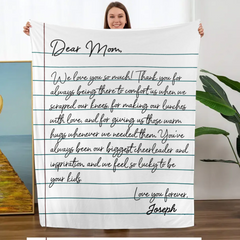 Dear Mom,
We love you so much! Thank you for
always being there to comfort us when we
scraped our knees, for making our lunches
with love, and for giving us those warm
hugs whenever we needed them. You've
always been our biggest cheerleader and
inspiration, and we feel so lucky to be
your kids.
Love you forever,
Joseph